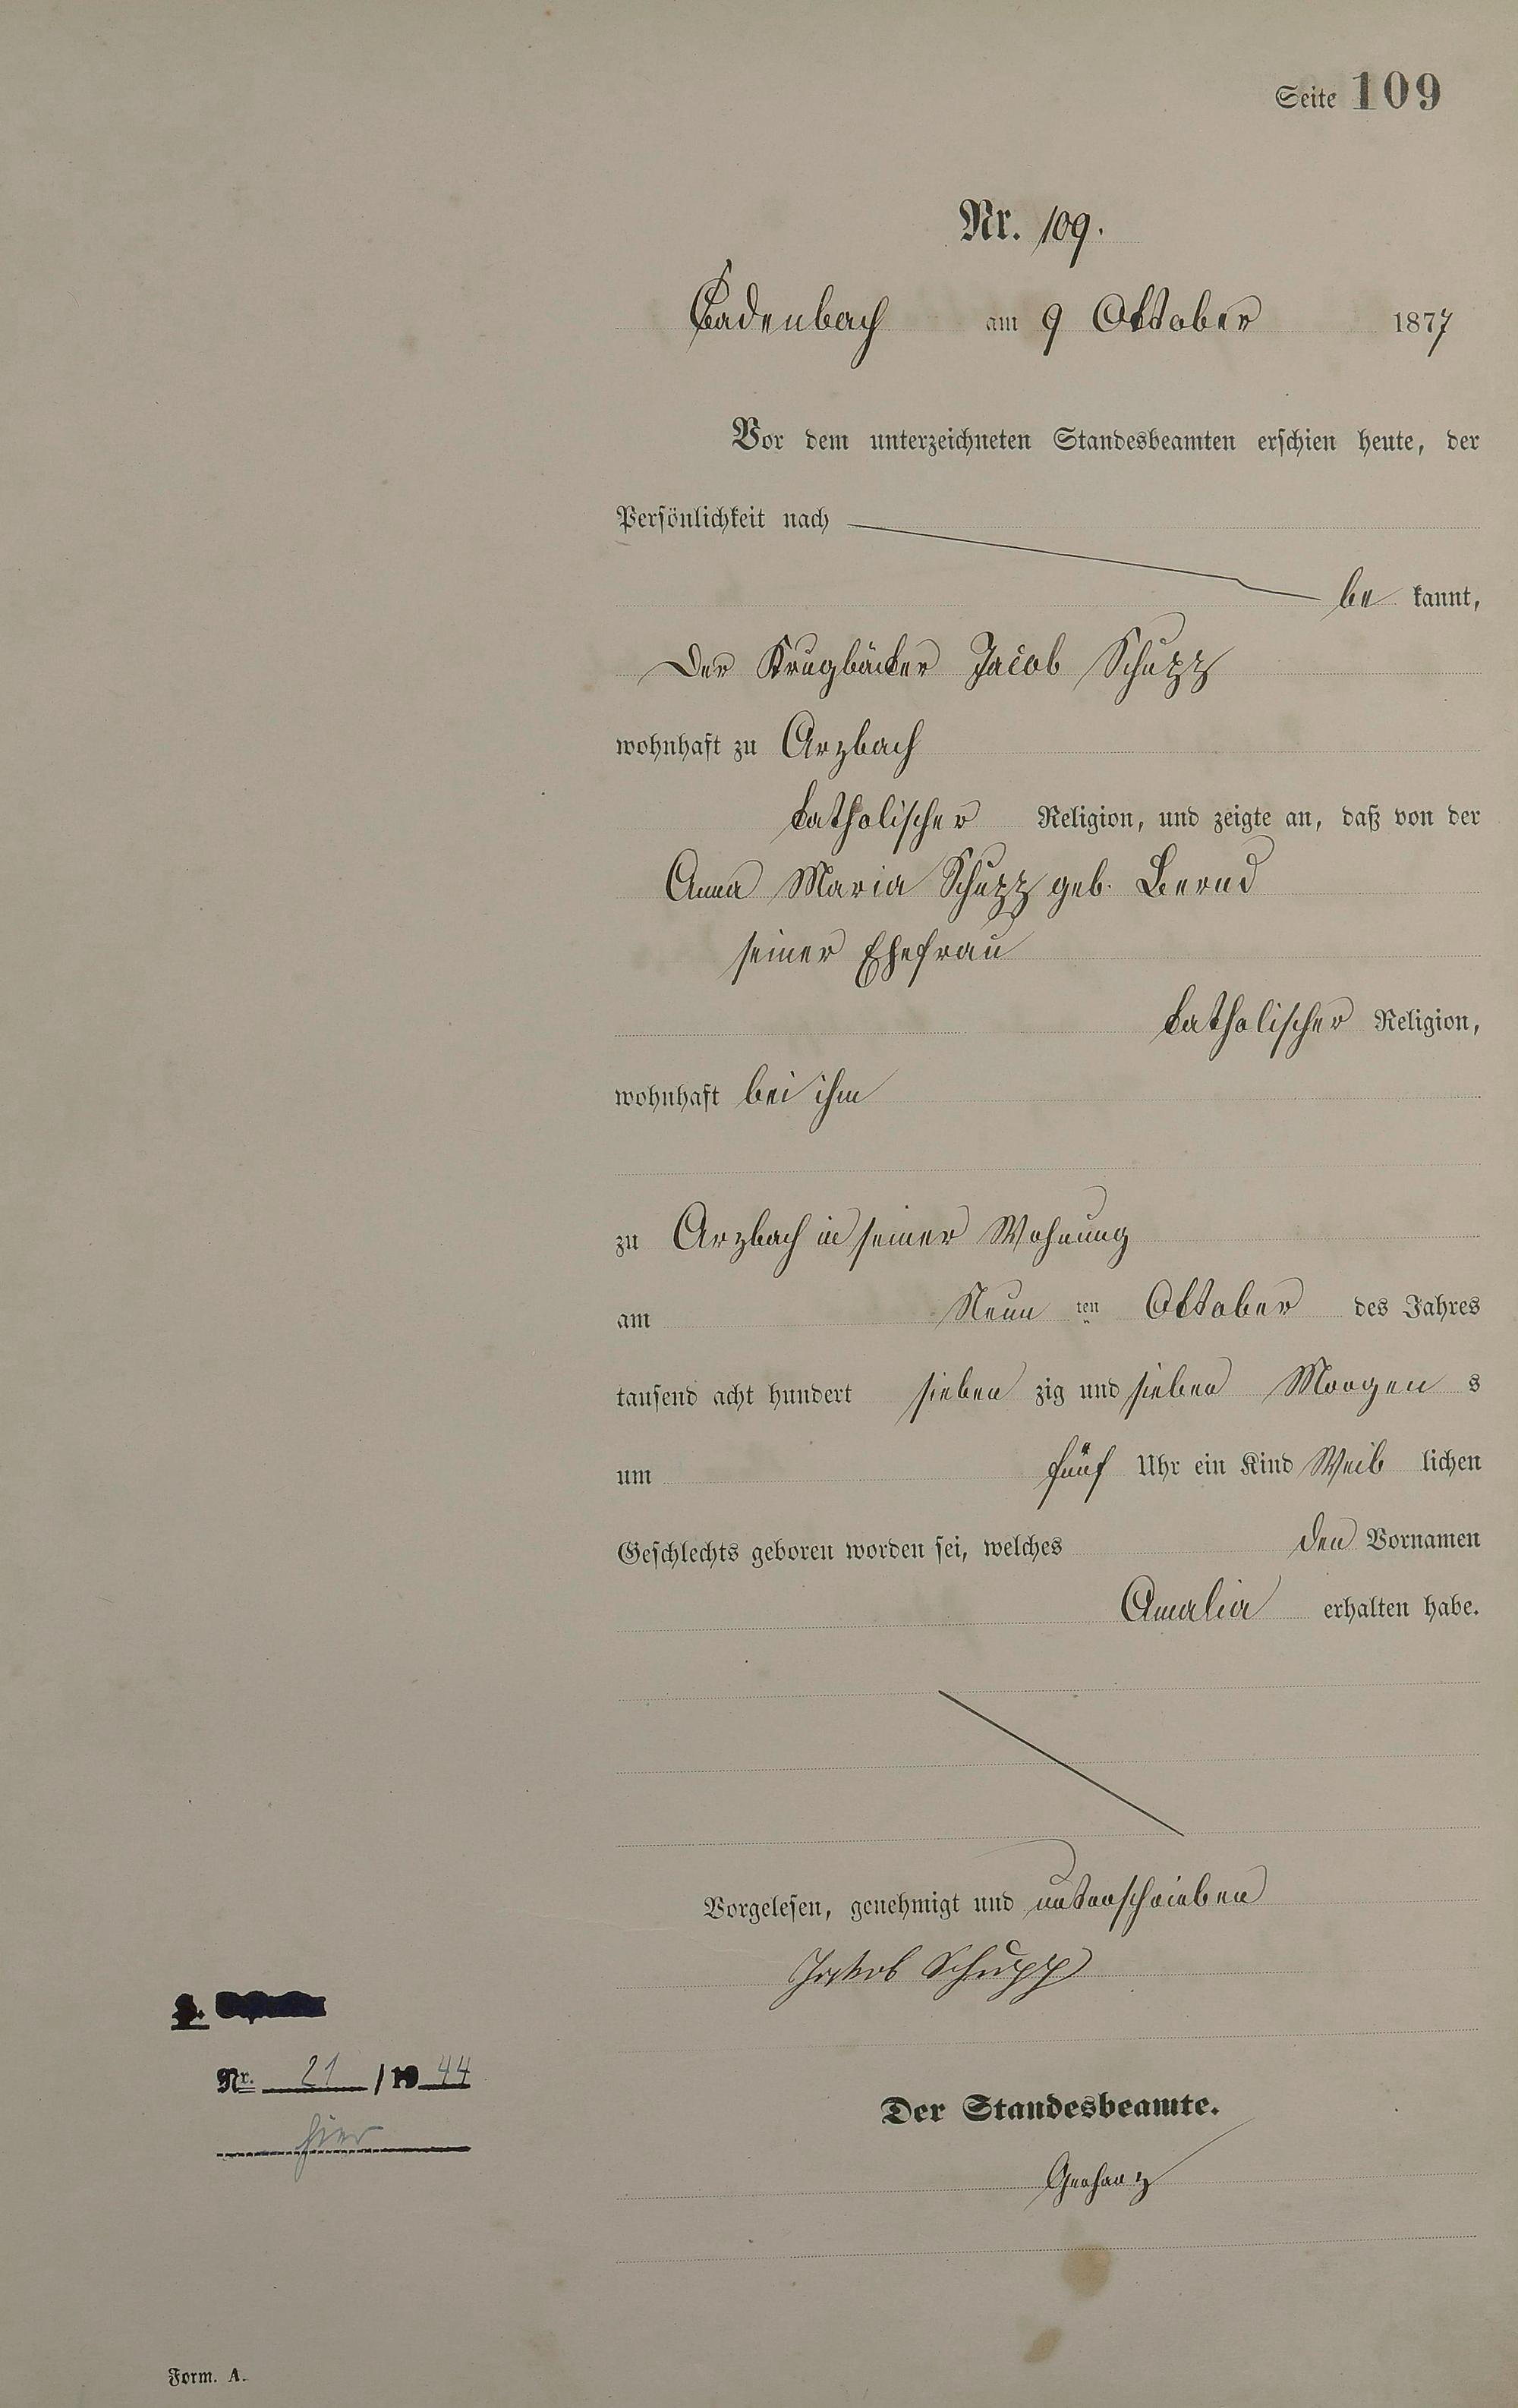 Seite 109
Nr. 109.
Cadenbach am 9 Oktober 1877
Vor dem unterzeichneten Standesbeamten erschien heute, der
Persönlichkeit nach
be kannt,
Der Krugbäcker Jacob Schupp
wohnhaft zu Arzbach
katholischer Religion, und zeigte an, daß von der
Anna Maria Schupp geb. Bernd
seiner Ehefrau
katholischer Religion,
wohnhaft bei ihm
zu Arzbach in seiner Wohnung
am Neun ten Oktober des Jahres
tausend acht hundert sieben zig und sieben Morgen s
um fünf Uhr ein Kind Weib lichen
Geschlechts geboren worden sei, welches den Vornamen
Amalia erhalten habe.
Vorgelesen, genehmigt und unterschrieben
Jakob Schupp
Nr. 21 / 19 44
hier
Der Standesbeamte.
Gerharz
Form. A.